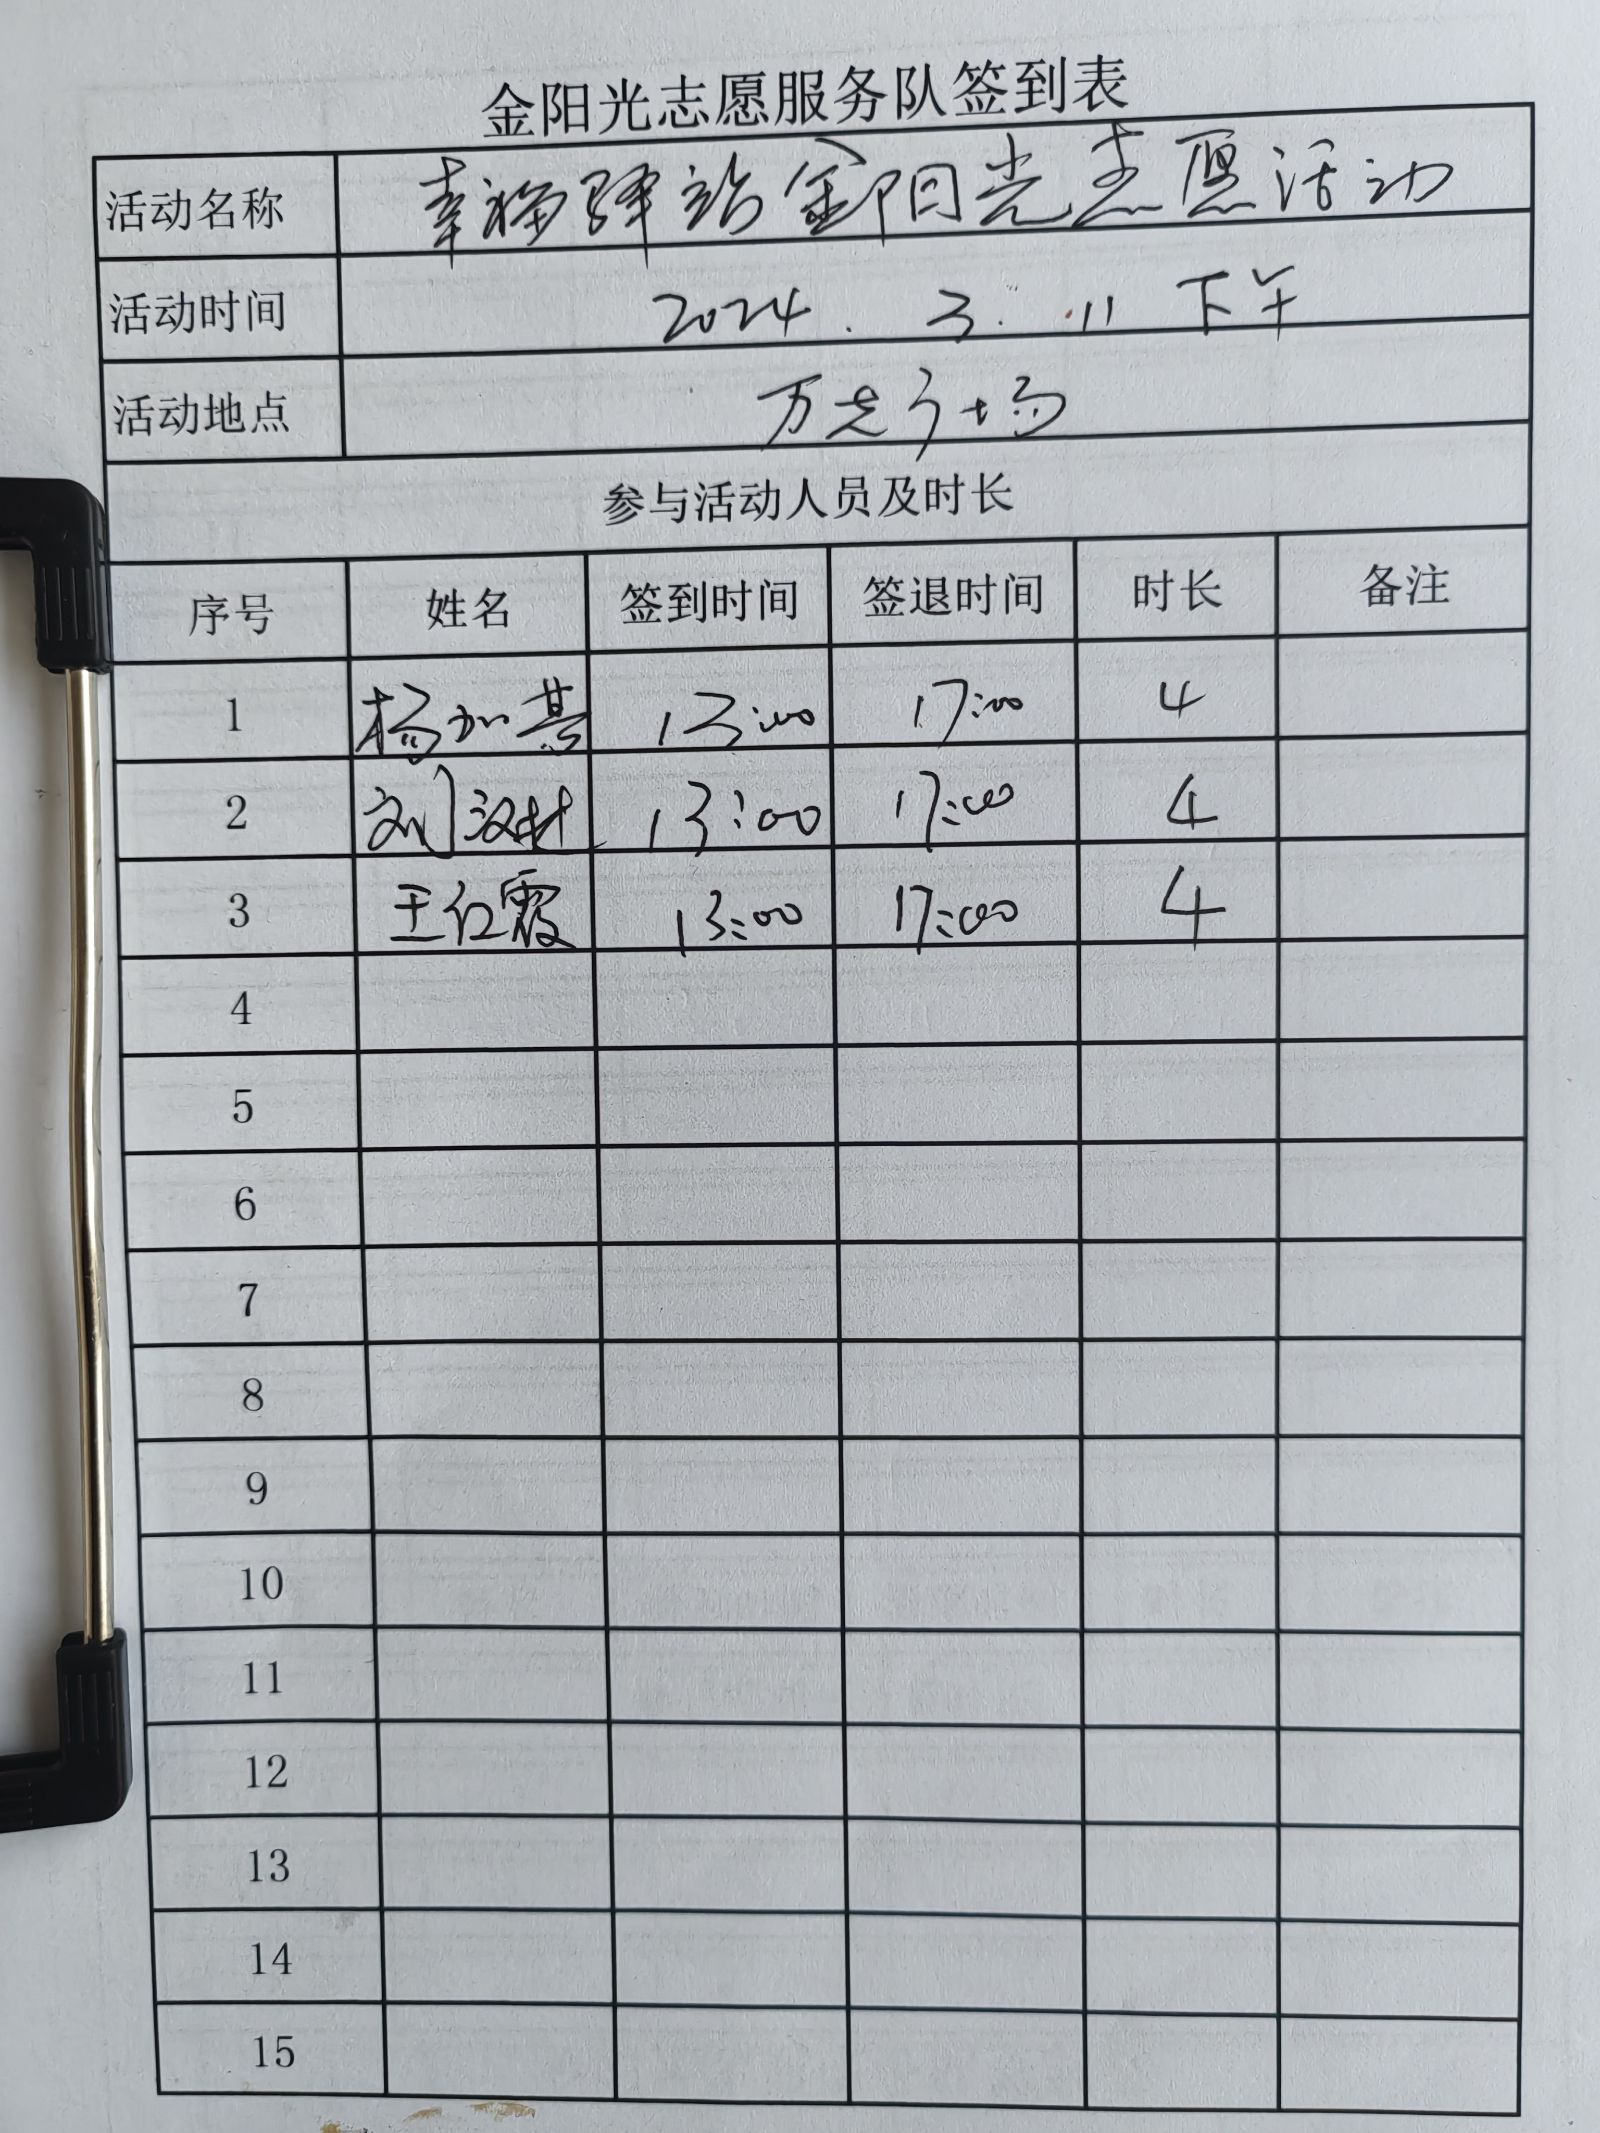 金阳光志愿服务队签到表
活动名称 幸福驿站金阳光志愿活动
活动时间 2024.3.11 下午
活动地点 万达广场
参与活动人员及时长
序号 姓名 签到时间 签退时间 时长 备注
1 杨加 13:00 17:00 4
2 刘汉 13:00 17:00 4
3 王红霞 13:00 17:00 4
4
5
6
7
8
9
10
11
12
13
14
15